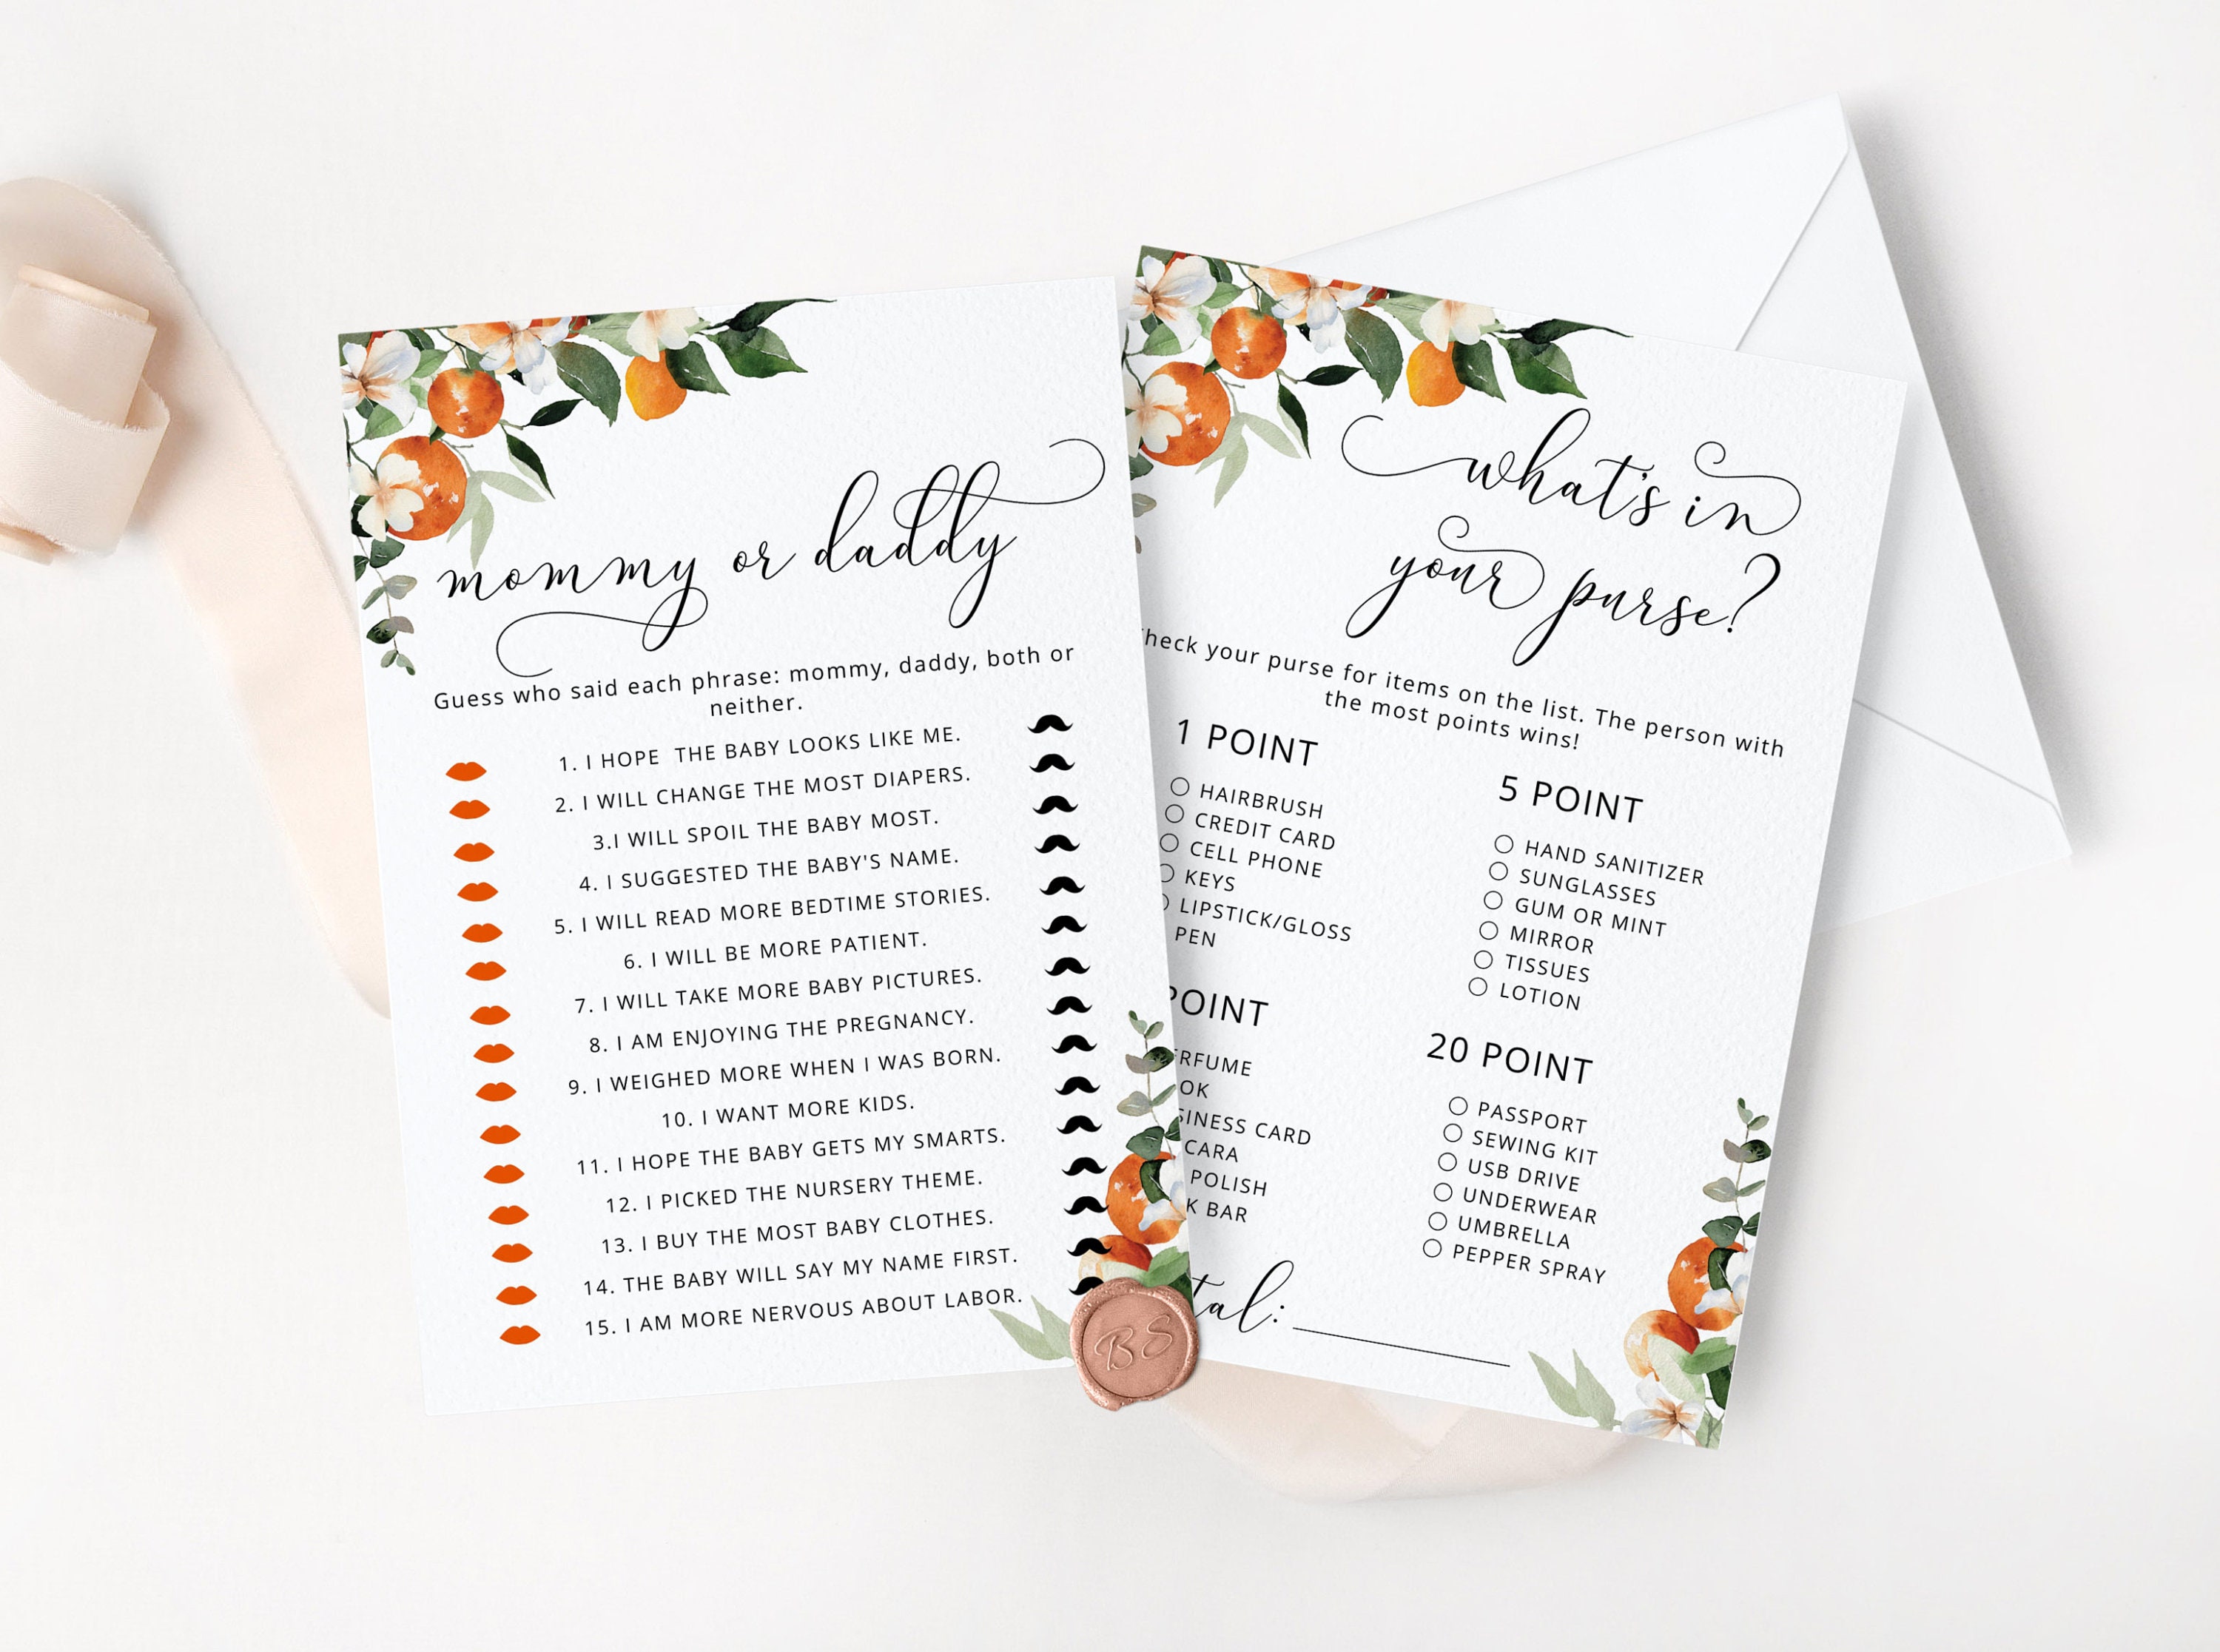 mommy or daddy
Guess who said each phrase: mommy, daddy, both or
neither.
1. I HOPE THE BABY LOOKS LIKE ME.
2. I WILL CHANGE THE MOST DIAPERS.
3.I WILL SPOIL THE BABY MOST.
4. I SUGGESTED THE BABY'S NAME.
5. I WILL READ MORE BEDTIME STORIES.
6. I WILL BE MORE PATIENT.
7. I WILL TAKE MORE BABY PICTURES.
8. I AM ENJOYING THE PREGNANCY.
9. I WEIGHED MORE WHEN I WAS BORN.
10. I WANT MORE KIDS.
11. I HOPE THE BABY GETS MY SMARTS.
12. I PICKED THE NURSERY THEME.
13. I BUY THE MOST BABY CLOTHES.
14. THE BABY WILL SAY MY NAME FIRST.
15. I AM MORE NERVOUS ABOUT LABOR.
BS
what's in
your purse?
your purse for items on the list. The person with
the most points wins!
1 POINT
HAIRBRUSH
CREDIT CARD
CELL PHONE
KEYS
LIPSTICK/GLOSS
PEN
5 POINT
HAND SANITIZER
SUNGLASSES
GUM OR MINT
MIRROR
TISSUES
LOTION
POINT
CARD
POLISH
BAR
20 POINT
PASSPORT
SEWING KIT
USB DRIVE
UNDERWEAR
UMBRELLA
PEPPER SPRAY